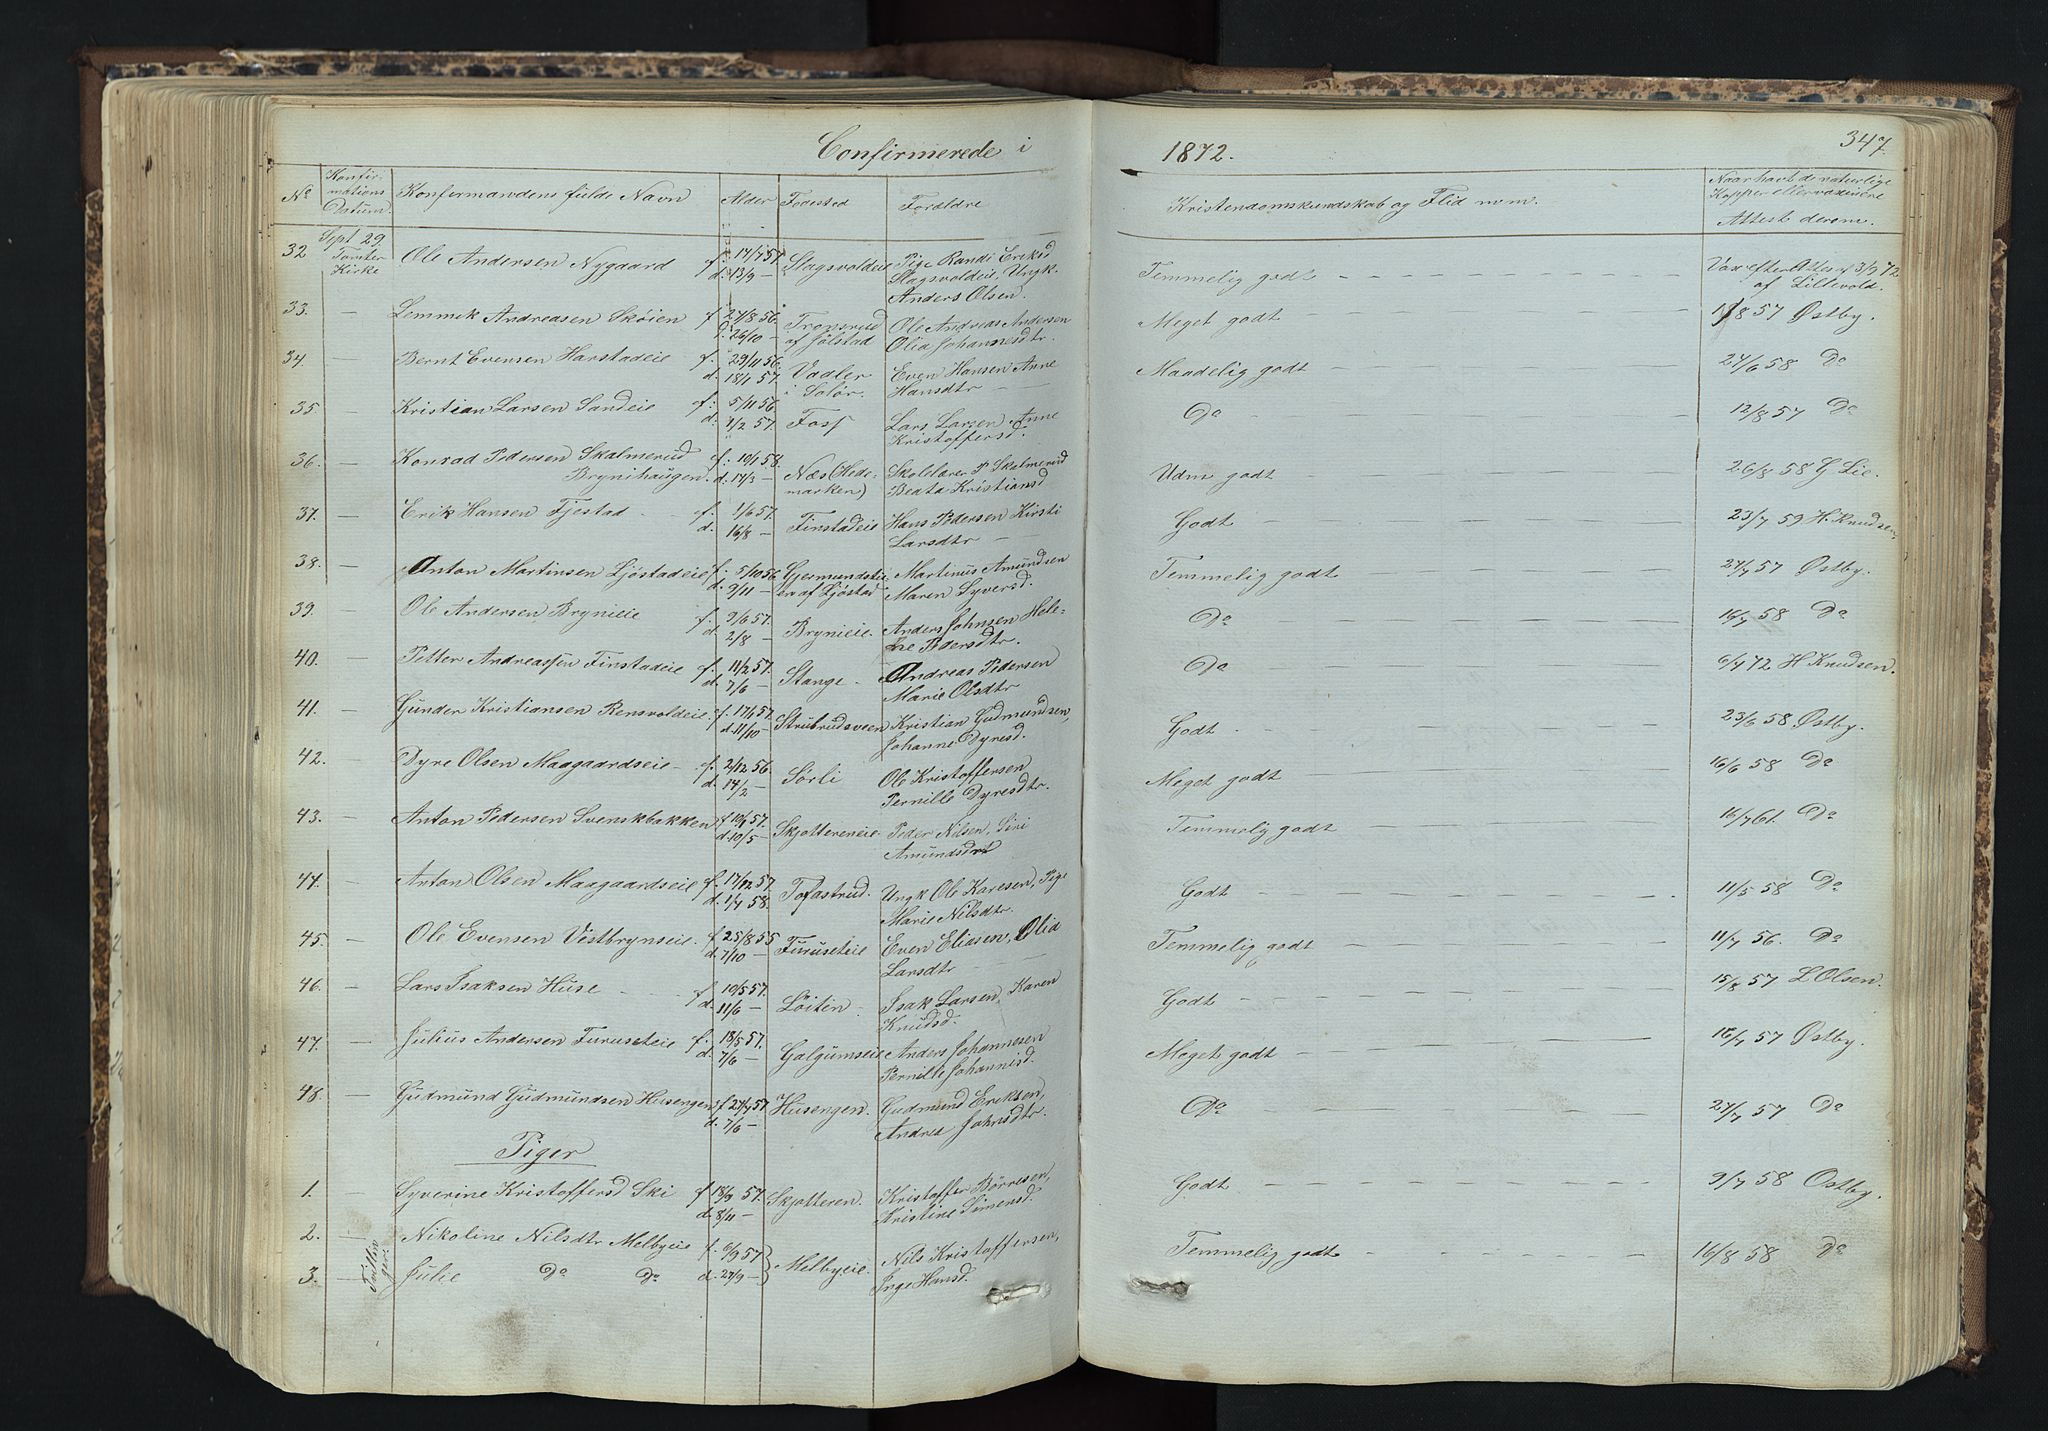 Confirmerede i 1872.
347.
No Konfirmations Datum. Konfirmandens fulde Navn Alder Fødested Forældre Kristendomskundskab og Flid m.m. Naar havt de naturlige Kopper eller vaxinere Attest derom.
Sept. 29.
Kirke
32 Ole Andersen Nygaard f. 14/4 57 Slagsvoldeie Pige Randi Eriksd Temmelig godt Vax efter Attest af 3/9 72
d. 13/9 — Slagsvoldeie, Ungk. af Lillevold.
Anders Olsen.
33. — Lemmek Andreasen Skøien f 27/8 56. Tronsrud Ole Andreas Andersen Meget godt 57 Østby.
d. 26/10 — af Jølstad Olia Johannesdtr.
34. — Bernt Evensen Harstadeie f. 29/11 56. Vaaler Even Hansen Anne Maadelig godt 24/6 58 Do
d. 18/1 57. i Solør. Hansdtr —
35. — Kristian Larsen Sandeie f. 5/11 56. Foss Lars Larsen Anne Do 12/8 57 Do
d. 1/2 57. Kristoffersd.
36. — Konrad Pedersen Skalmerud f. 10/1 58. Næs (Hede- Skolelærer P Skalmerud Udm godt 26/8 58 G Lie.
Brynihaugen. d. 14/3 — marken) Beata Kristiansd
37. — Erik Hansen Fjestad f. 1/6 57. Finstadeie Hans Pedersen Kirsti Godt 23/7 59 H. Knudsen
d. 16/8 — Larsdtr —
38. Anton Martinsen Ljøstadeie f. 5/10 56 Martinus Amundsen Temmelig godt 24/7 57 Østby.
d. 9/11 — af Ljøstad Maren Syversd.
39. — Ole Andersen Brynieie f. 9/6 57. Brynieie. Anders Johnsen Hele- Do 16/7 58 Do
d. 2/8 — ne Pedersdtr.
40. — Petter Andreassen Finstadeie f. 11/2 57. Stange — Andreas Pedersen Do 6/4 72 H Knudsen.
d. 7/6 — Marie Olsdtr
41. — Gunder Kristiansen Rensvoldeie. f. 17/1 57. Strubrudsveen Kristian Gudmundsen, Godt 23/6 58 Østby.
d. 11/10 — Johanne Dyresd.
42. — Dyre Olsen Maagaardseie — f. 2/12 56. Sørli Ole Kristoffersen Meget godt 16/6 58 Do
d. 14/2 — Pernille Dyresdtr.
43. — Anton Pedersen Svenskbakken f. 10/4 57. Skjottereneie Peder Nilsen, Siri Temmelig godt 16/7 61. Do
d. 10/5 — Amundsdtr
44. — Anton Olsen Maagaardseie f. 17/12 57. Tofastrud. Ungk Ole Karesen, Pige Godt 11/5 58 Do
d. 1/4 58. Marie Nilsdtr.
45. — Ole Evensen Vestbrynseie. f. 25/8 55 Furuseteie Even Eliasen, Olia Temmelig godt 11/7 56. Do
d. 7/10 — Larsdtr
46. — Lars Isaksen Huse f. 10/5 57. Løiten Isak Larsen, Karen Godt 15/8 57 L Olsen.
d. 11/6 — Knudsd.
47. — Julius Andersen Furuseteie f. 18/5 57. Galgumseie Anders Johannesen Meget godt 16/7 57 Østby.
d. 7/6 — Pernille Johannisd.
48. — Gudmund Gudmundsen Husengen f. 24/4 57 Husengen. Gudmund Eriksen, Do 27/7 57 Do
d. 7/6 — Andrea Johnsdtr.
Piger
1. — Syverine Kristoffersd Ski f 18/9 57. Skjotteren. Kristoffer Børresen, Godt 9/7 58 Østby.
d. 8/11 — Kristine Simensd.
2. — Nikoline Nilsdtr Melbyeie f. 6/9 57 Melbyeie. Nils Kristoffersen, Temmelig godt 16/8 58 Do
Tvillinger.
3. — Julie Do Do d. 27/9 — Inge Hansd.